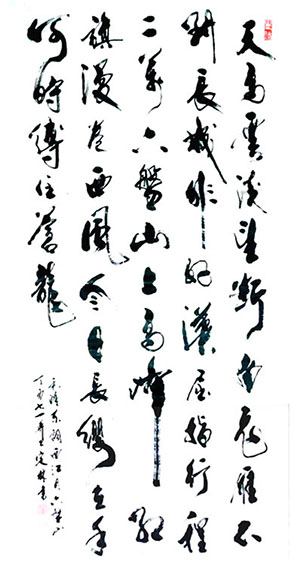 天高雲淡望斷南飛雁不
到長城非好漢屈指行程
二萬六盤山上高峰紅
旗漫卷西風今日長纓在手
何時縛住蒼龍
毛澤東詞西江月六盤山
丁酉七一 書